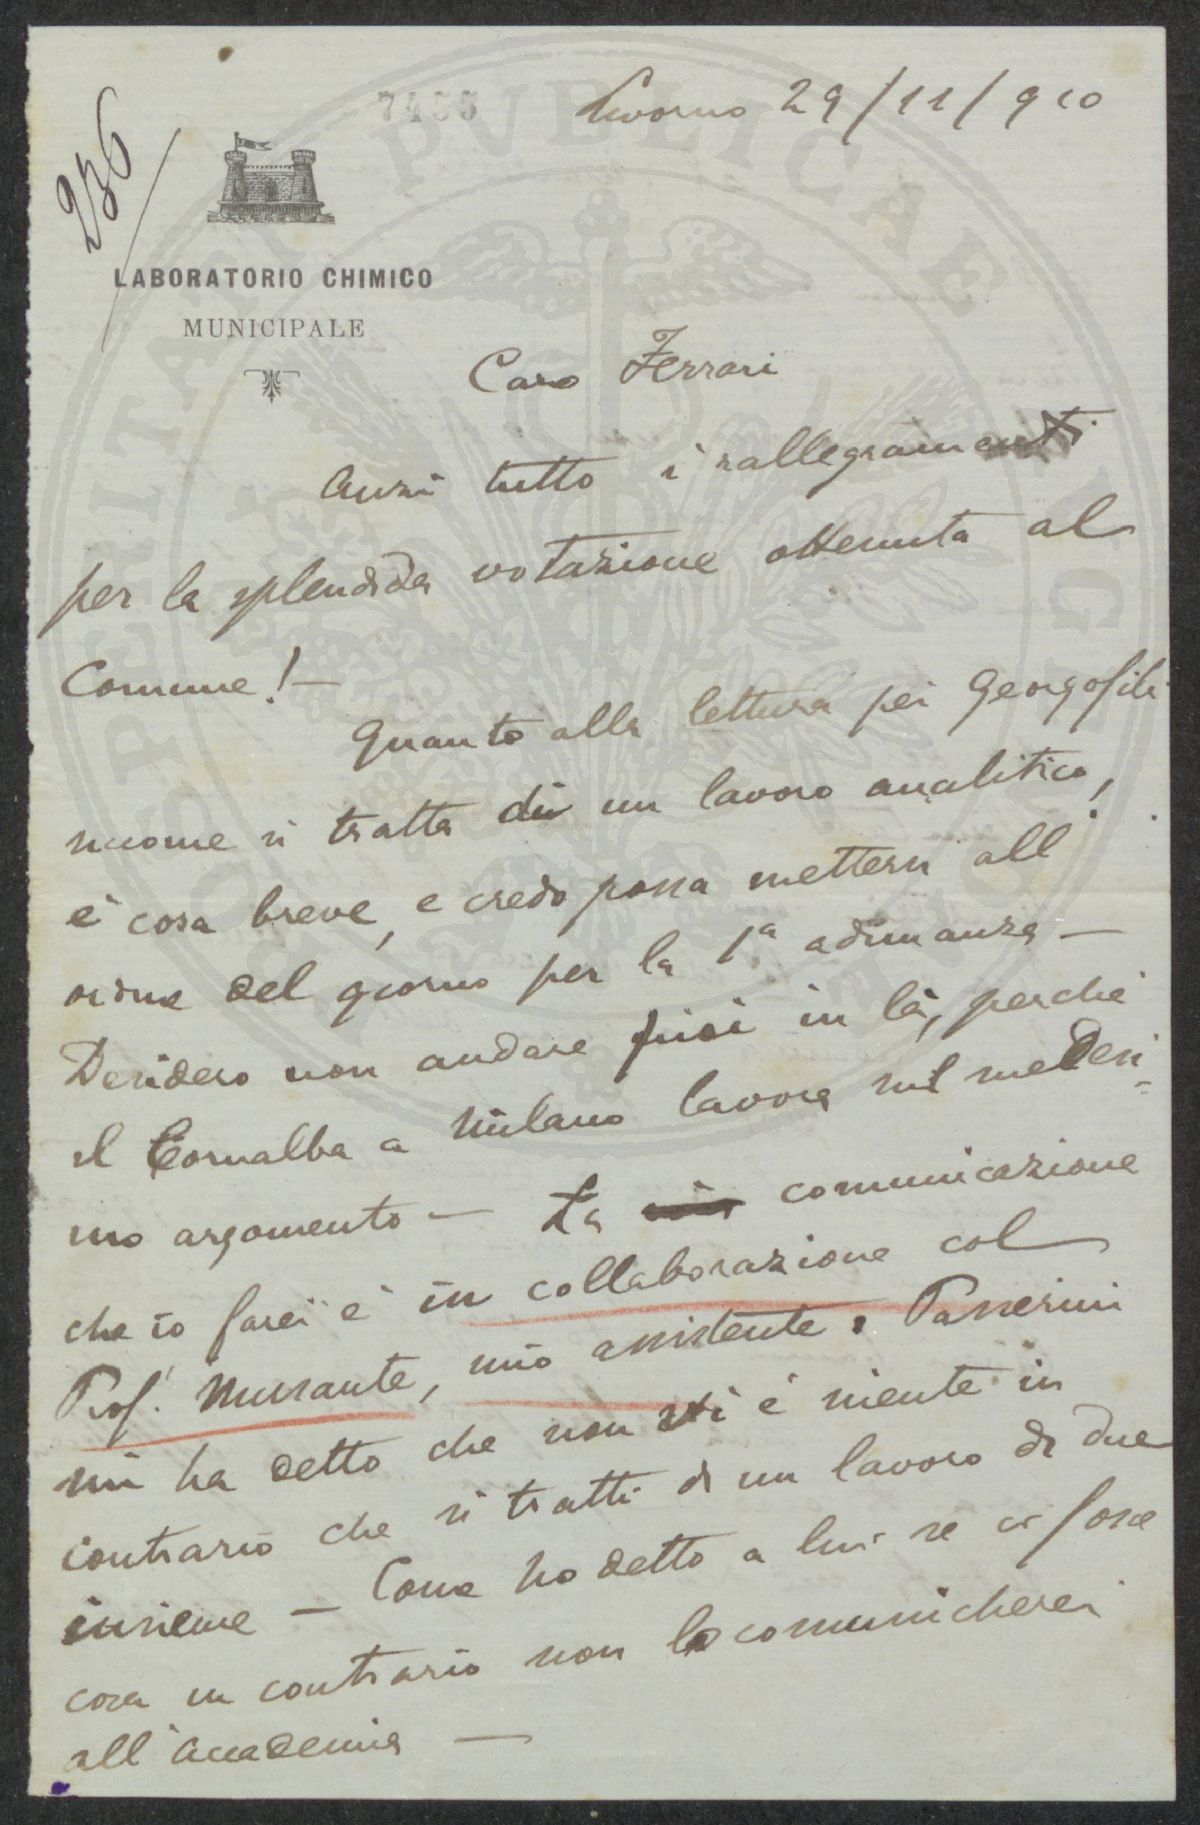 7485
Livorno 29/11/910
236
LABORATORIO CHIMICO
MUNICIPALE
Caro Ferrari
Anzi tutto i rallegramenti
per la splendida votazione ottenuta al
Comune! —
Quanto alla lettura pei Georgofili
siccome si tratta di un lavoro analitico,
è cosa breve, e credo possa mettersi all'
ordine del giorno per la 1ª adunanza —
Desidero non andare più in là, perché
il Cornalba a Milano lavora sul medesi-
mo argomento — La comunicazione
che io farei è in collaborazione col
Prof. Mussante, mio assistente. Passerini
mi ha detto che non vi è niente in
contrario che si tratti di un lavoro di due
insieme — Come ho detto a lui se ci fosse
cosa in contrario non lo comunicherei
all'Accademia —
PROSPERITATI PVBLICAE AVGENDAE